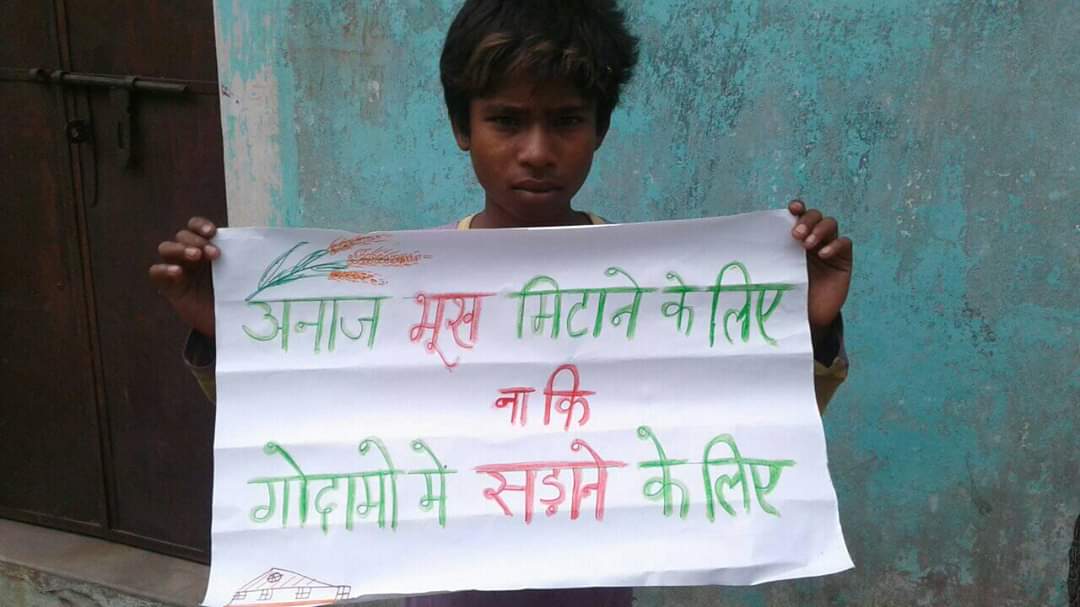 अनाज भूख मिटाने के लिए
ना कि
गोदामो मे सड़ाने के लिए